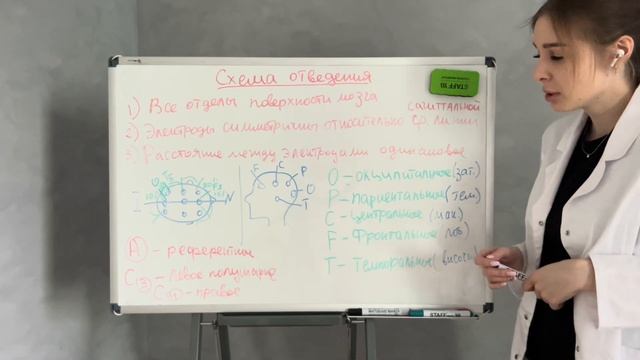 Схема отведения
1) Все отделы поверхности мозга
сагиттальной
2) Электроды симметричны относительно ср. линии
3) Расстояние между электродами одинаковое
O - окципитальное (зат.)
P - париентальное (тем.)
C - центральное (мак.)
F - Фронтальное (лоб)
T - Темпоральное (височн)
F
C
P
O
T
I
N
A - референтный
C 3 - левое полушарие
- правое
STAFF
STAFF